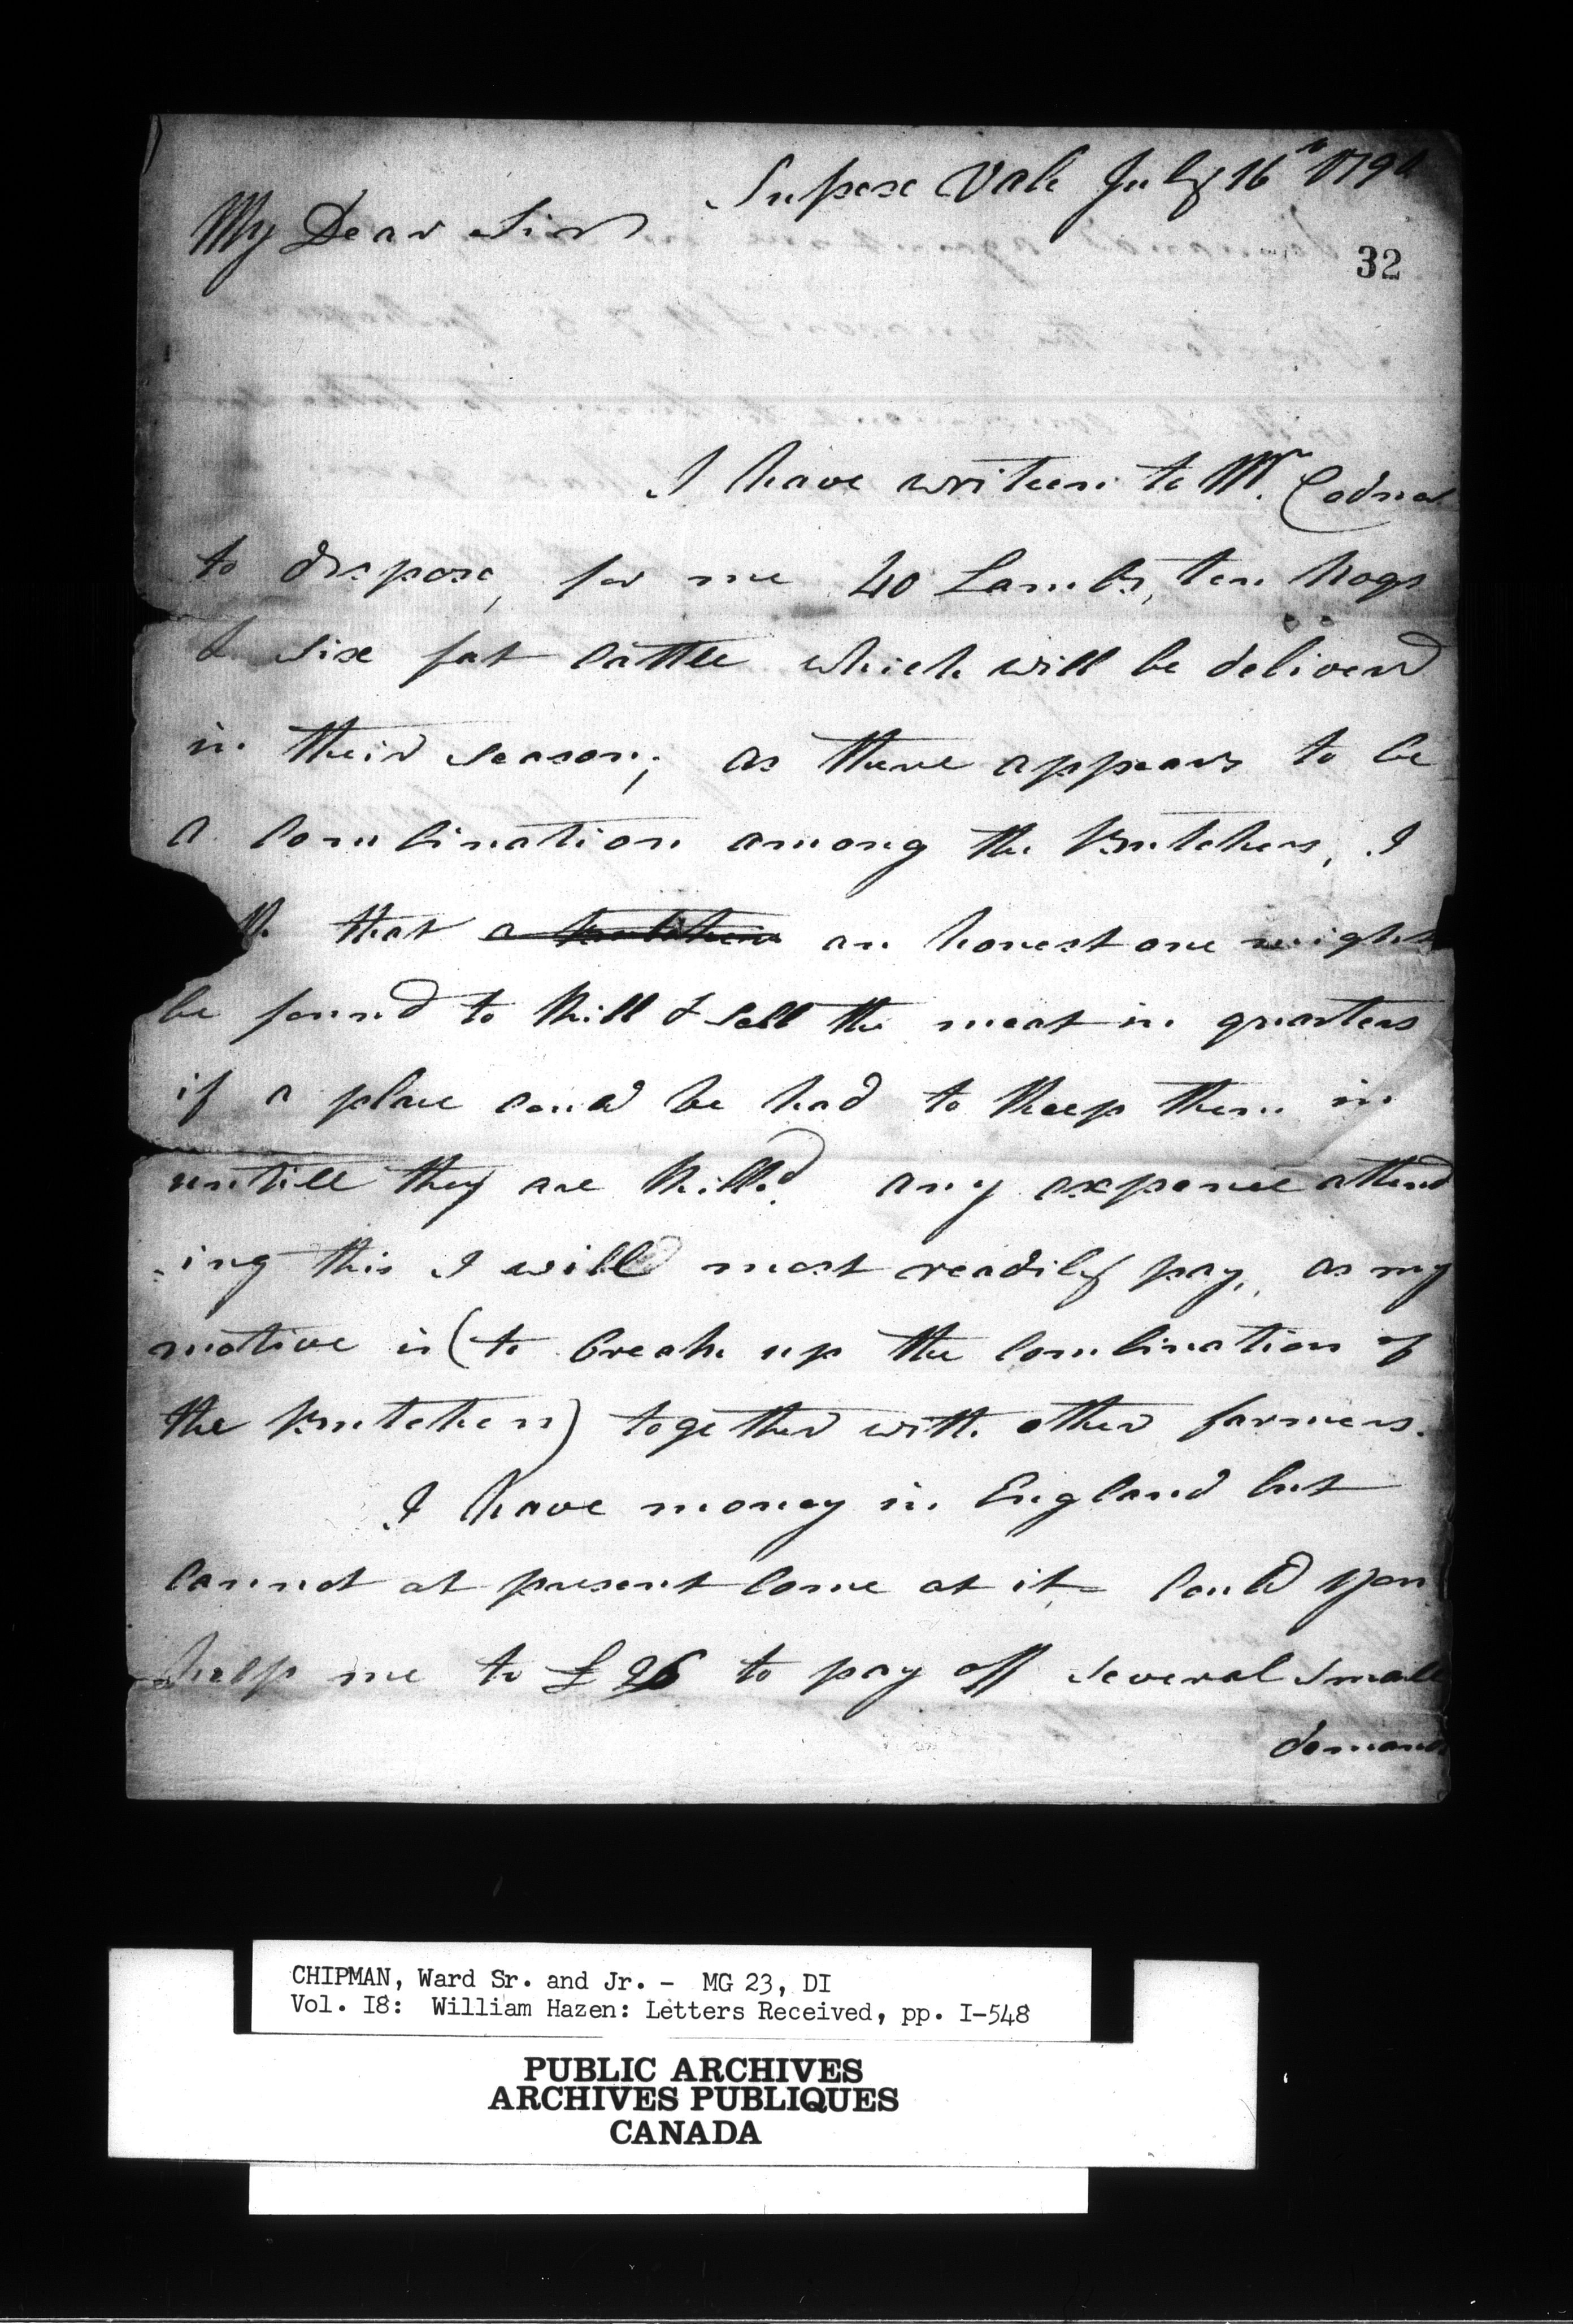 Sussex Vale July 16th 179
My Dear Sir
32
I have writeen to Mr. Codner
to dispose, for me 40 Lambs, ten hogs
& six fat Cattle which will be deliverd
in their season; as there appears to be
a Combination among the Butchers, I
that a butcher an honest one might
be found to kill & sell the meat in quarters
if a place coud be had to keep them in
untill they are killd. any expence attend
-ing this I will most readily pay, as my
motive is (to break up the Combination of
the Butchers) together with other farmers.
I have money in England but
Cannot at present Come at it Could you
help me to £ 26 to pay off several small
demands
CHIPMAN, Ward Sr. and Jr. - MG 23, DI
Vol. I8: William Hazen: Letters Received, pp. I-548
PUBLIC ARCHIVES
ARCHIVES PUBLIQUES
CANADA